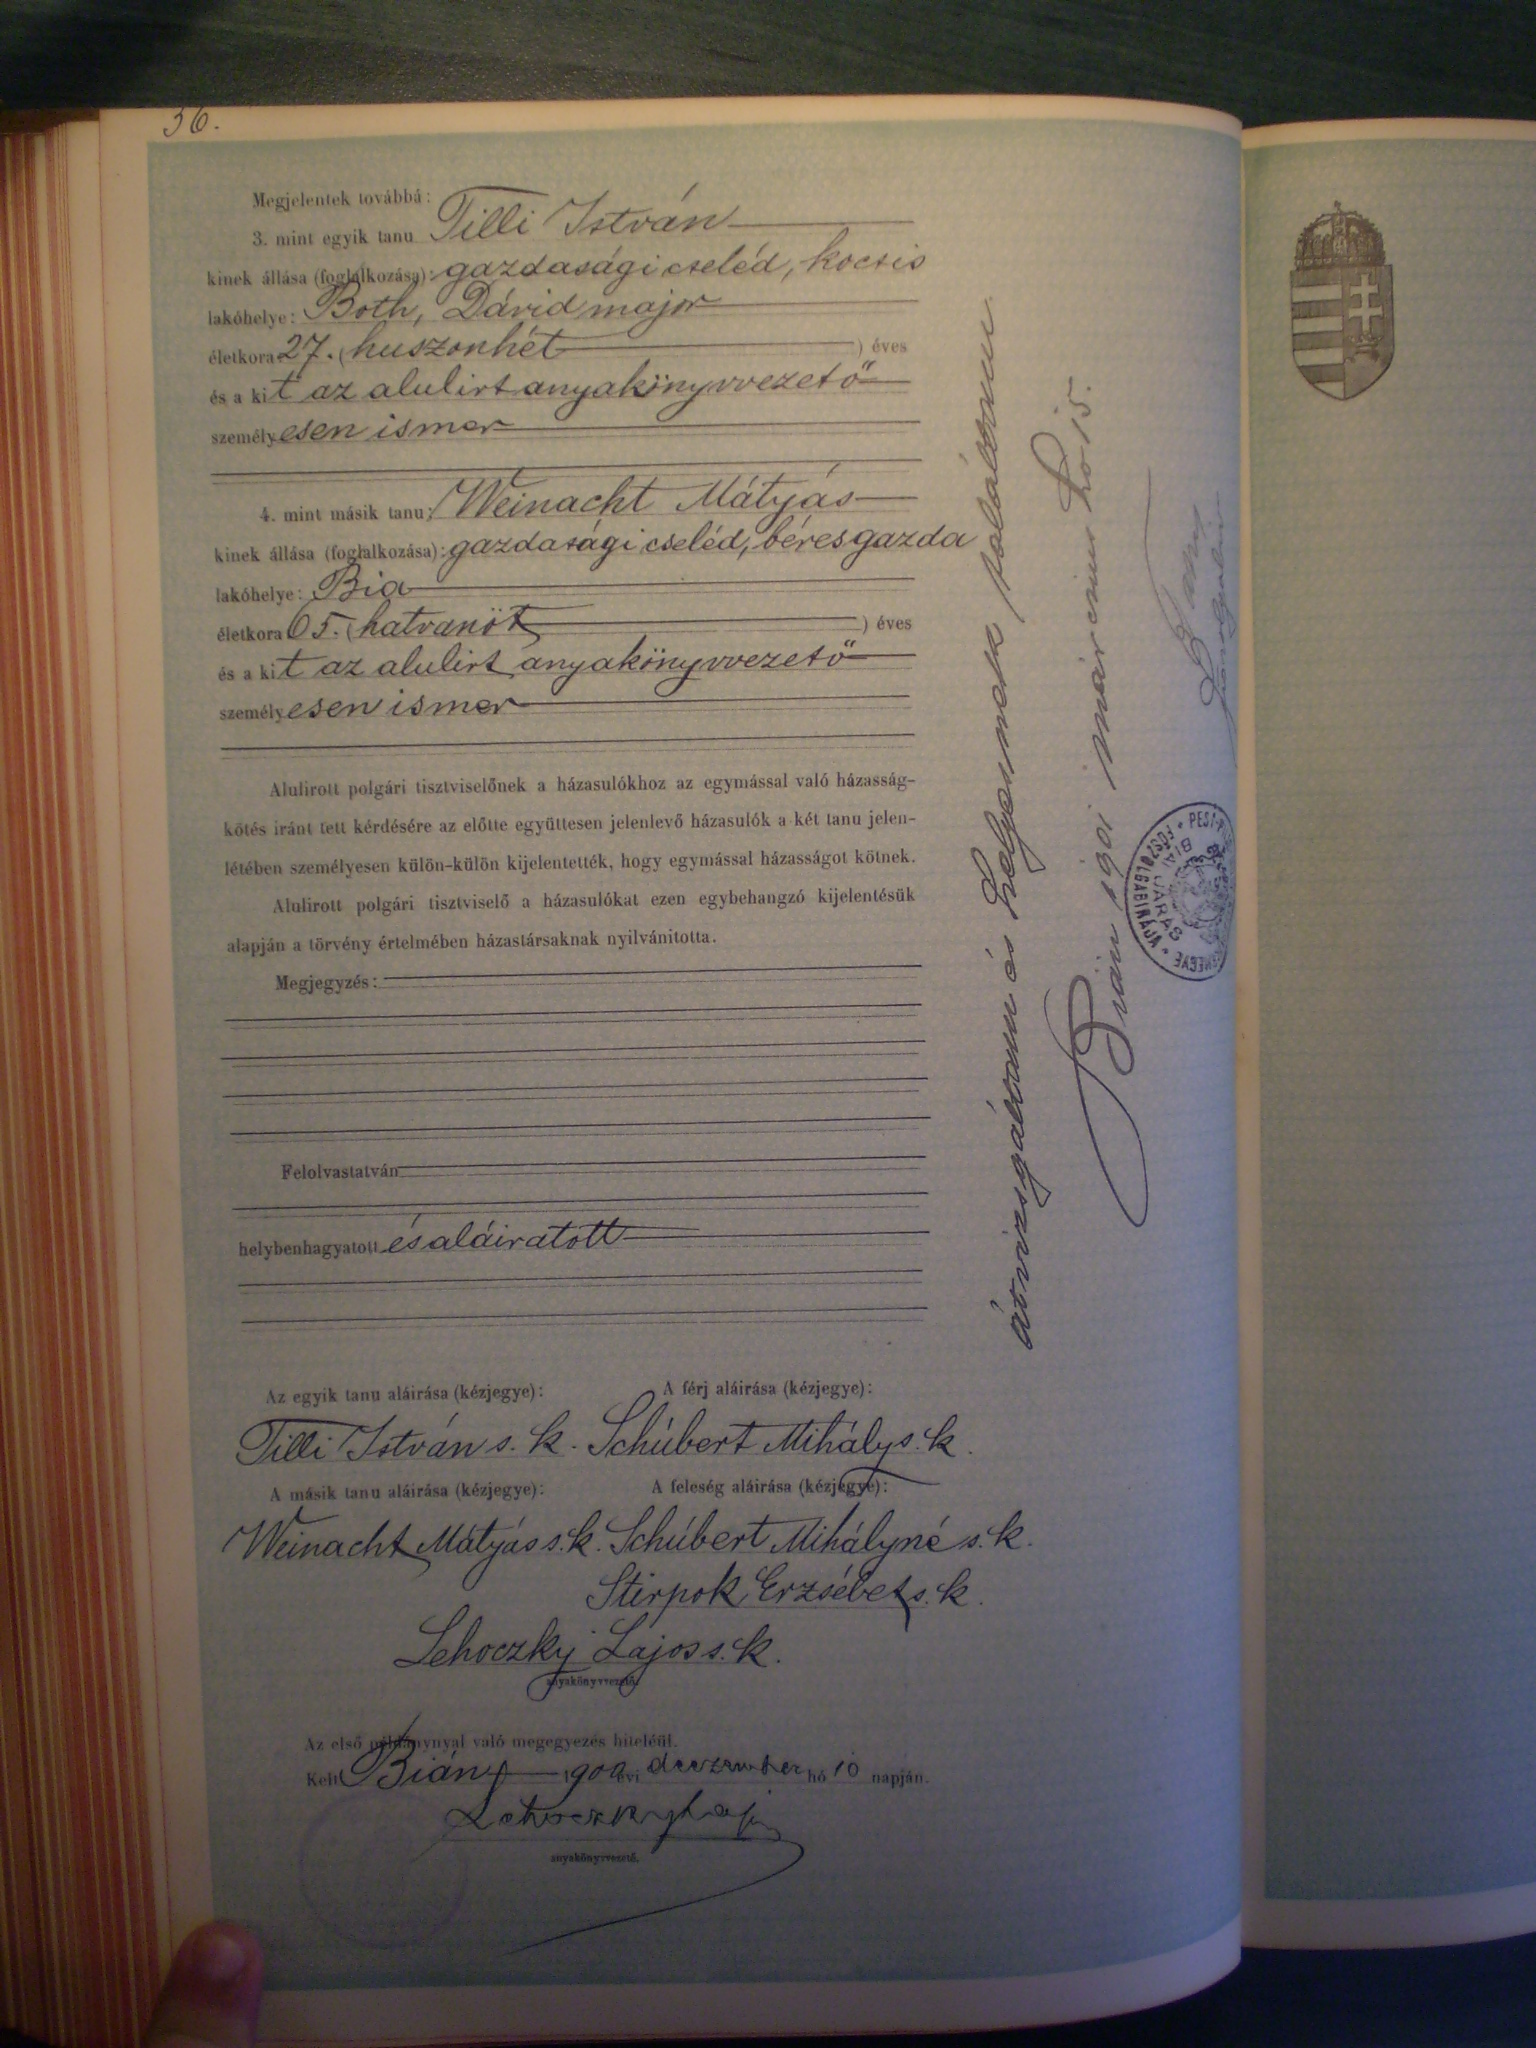 36.
Megjelentek továbbá:
3. mint egyik tanu Tilli István
kinek állása (foglalkozása): gazdasági cseléd, kocsis
lakóhelye: Both, Dávid major
életkora 27. (huszonhét) éves
és a kit az alulirt anyakönyvvezető
személyesen ismer
4. mint másik tanu: Weinacht Mátyás
kinek állása (foglalkozása): gazdasági cseléd, béresgazda
lakóhelye: Bia
életkora 65. (hatvanöt) éves
és a kit az alulirt anyakönyvvezető
személyesen ismer
Alulirott polgári tisztviselőnek a házasulókhoz az egymással való házasság-
kötés iránt tett kérdésére az előtte együttesen jelenlevő házasulók a két tanu jelen-
létében személyesen külön-külön kijelentették, hogy egymással házasságot kötnek.
Alulirott polgári tisztviselő a házasulókat ezen egybehangzó kijelentésük
alapján a törvény értelmében házastársaknak nyilvánitotta.
Megjegyzés:
Felolvastatván
helybenhagyatott és aláiratott
Az egyik tanu aláirása (kézjegye): A férj aláirása (kézjegye):
Tilli István s. k. Schúbert Mihály s. k.
A másik tanu aláirása (kézjegye): A feleség aláirása (kézjegye):
Weinacht Mátyás s. k. Schúbert Mihályné s. k.
Stirpok Erzsébet s. k.
Lehoczky Lajos s. k.
anyakönyvvezető.
Az első példánynyal való megegyezés hiteléül.
Kelt Bián, 1900 évi deczember hó 10 napján.
Lehoczky Lajos
anyakönyvvezető.
átvizsgáltam és helyesnek találtam
Bián 1901 március hó 15.
BIAI JÁRÁS FŐSZOLGABIRÁJA